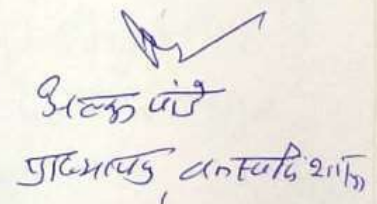 अल्का पांडे
प्राध्यापक, वनस्पति शास्त्र